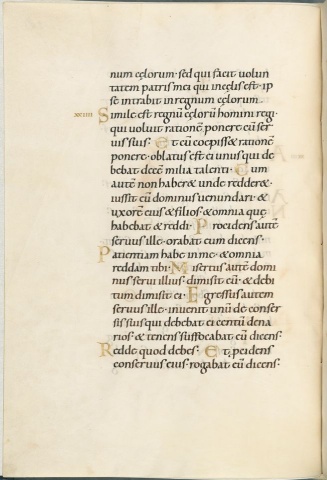 num cęlorum· sed qui facit volun
tatem patris mei qui incęlis est· ip
se intrabit inregnum cęlorum·
xxiiii Simile est regnū cęlorū homini regi·
qui voluit rationē ponere cū ser
uis suis· Et cū coepisset rationē
ponere· oblatus est ei unus qui de
bebat decē milia talenti· Cum
autē non haberet unde redderet·
iussit eū dominus uenundari· &
uxorē eius & filios· & omnia quę
habebat & reddi· Procidens autē
seruus ille· orabat eum dicens·
Patientiam habe in me· & omnia
reddam tibi· Misertus autē domi
nus serui illius· dimisit eū· & debi
tum dimisit ei· Egressus autem
seruus ille· inuenit unū de conser
sis suis qui debebat ei centū dena
rios· & tenens suffocabat eū dicens·
Redde quod debes· Et pcidens
conseruus eius· rogabat eū dicens·